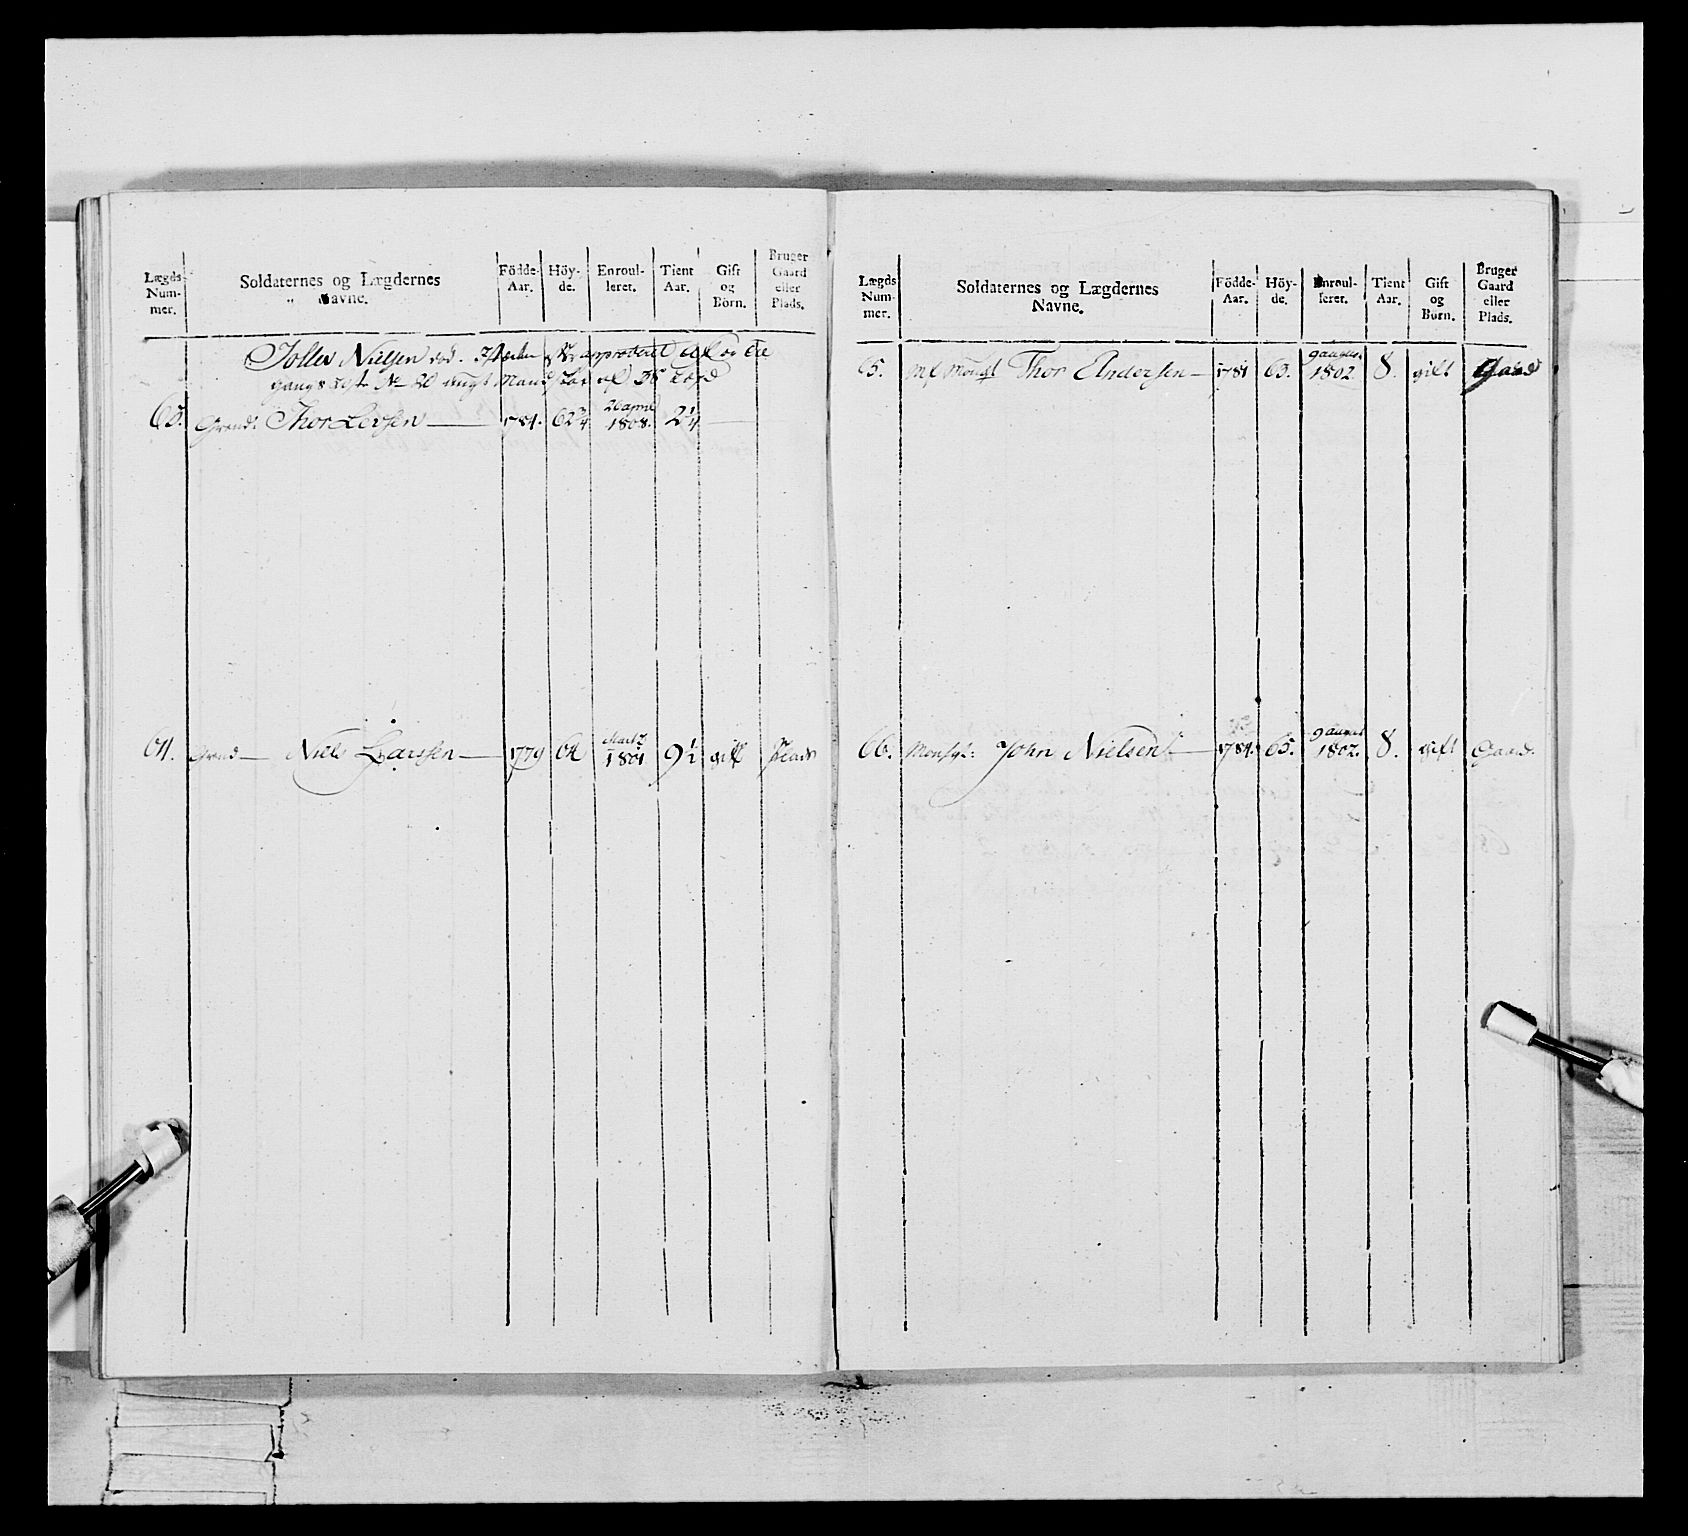 Lægds Num- mer.
Soldaternes og Lægdernes Navne.
Födde- Aar.
Höy- de.
Enroul- leret.
Tient Aar.
Gift og Börn.
Bruger Gaard eller Plads.
Nielsen approberet
gangs No
63. Grend: Thor 1784. 62 3/4 26 april 1808. 2 1/4
64. Grend Niels Larssen 1779 64 Martz 1801 9 1/2 gift Plads
Lægds Num- mer.
Soldaternes og Lægdernes Navne.
Födde- Aar.
Höy- de.
Enroul- leret.
Tient Aar.
Gift og Börn.
Bruger Gaard eller Plads.
65. Thor Andersen 1781 63. 9 august 1802. 8. gift Gaard
66. John Nielsen 1784. 65. 9 august 1802. 8. gift Gaard.